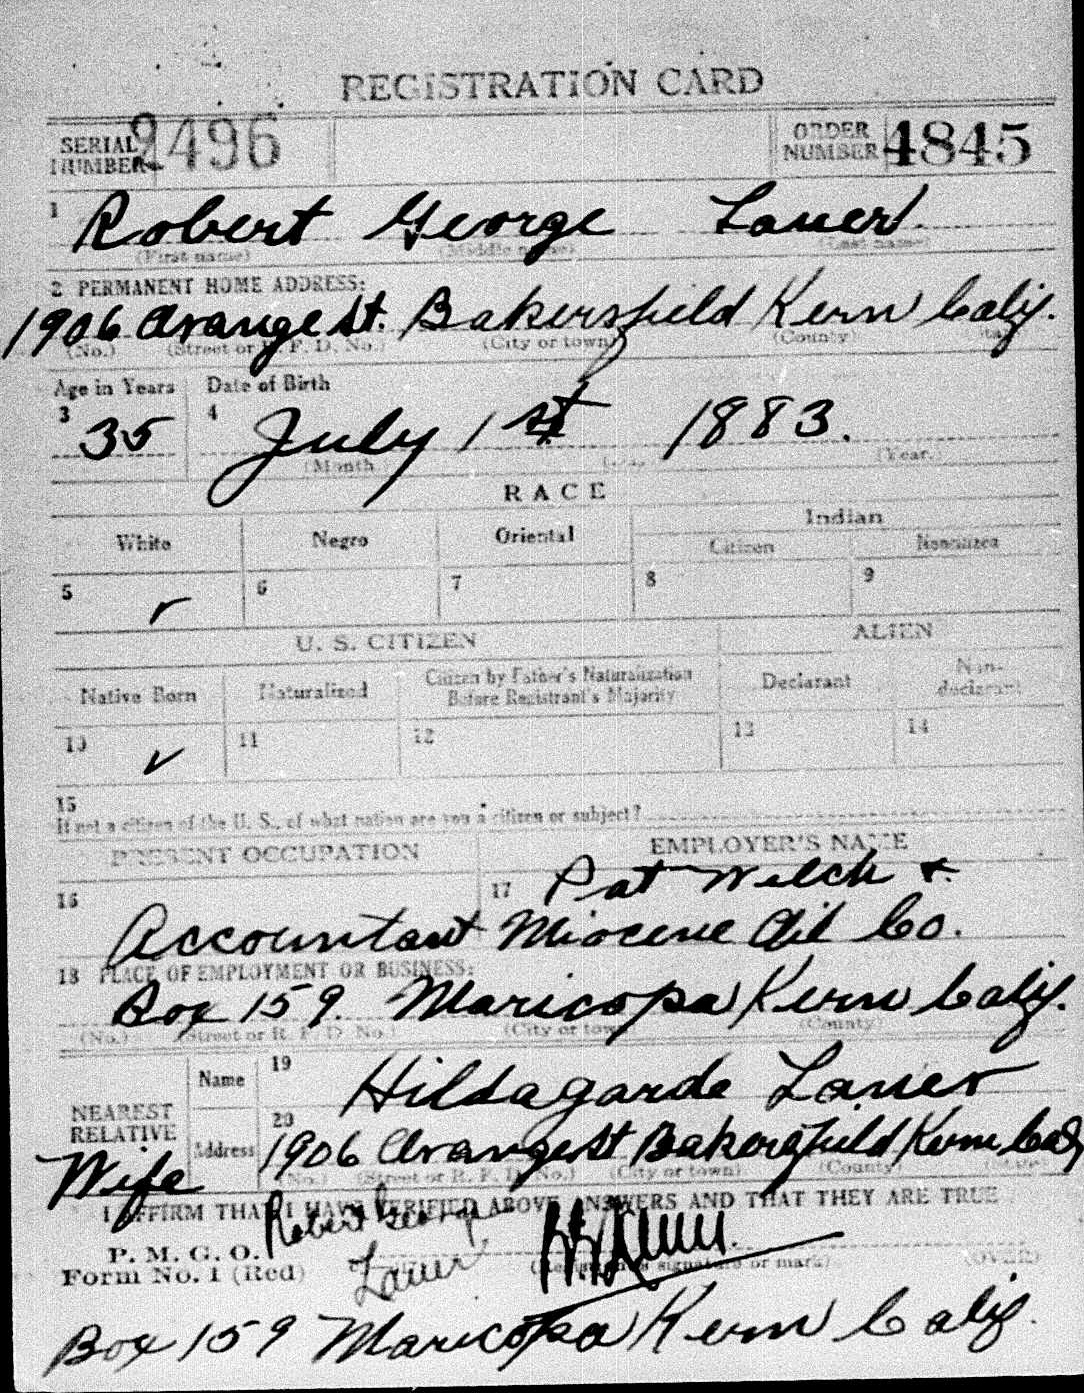 REGISTRATION CARD
SERIAL NUMBER 2496 ORDER NUMBER 4845
1 Robert George Lauer
(First name) (Middle name) (Last name)
2 PERMANENT HOME ADDRESS:
1906 Orange St. Bakersfield Kern Calif.
(No.) (Street or R. F. D. No.) (City or town) (County)
Age in Years Date of Birth
3 35 4 July 1st 1883.
(Month) (Year.)
RACE
White Negro Oriental Indian
Citizen Noncitizen
5 ✓ 6 7 8 9
U. S. CITIZEN ALIEN
Native Born Naturalized Citizen by Father's Naturalization Before Registrant's Majority Declarant Non-declarant
10 ✓ 11 12 13 14
15
If not a citizen of the U. S., of what nation are you a citizen or subject?
PRESENT OCCUPATION EMPLOYER'S NAME
16 17 Pat Welch &
Accountant Miocene Oil Co.
18 PLACE OF EMPLOYMENT OR BUSINESS:
Box 159. Maricopa Kern Calif.
(No.) (Street or R. F. D. No.) (City or town) (County)
NEAREST RELATIVE Name 19 Hildagarde Lauer
Address 20 1906 Orange St Bakersfield Kern Cal
Wife (No.) (Street or R. F. D. No.) (City or town) (County) (State)
I AFFIRM THAT I HAVE VERIFIED ABOVE ANSWERS AND THAT THEY ARE TRUE
P. M. G. O. Robert George
Form No. 1 (Red) Lauer (Registrant's signature or mark) (OVER)
Box 159 Maricopa Kern Calif.